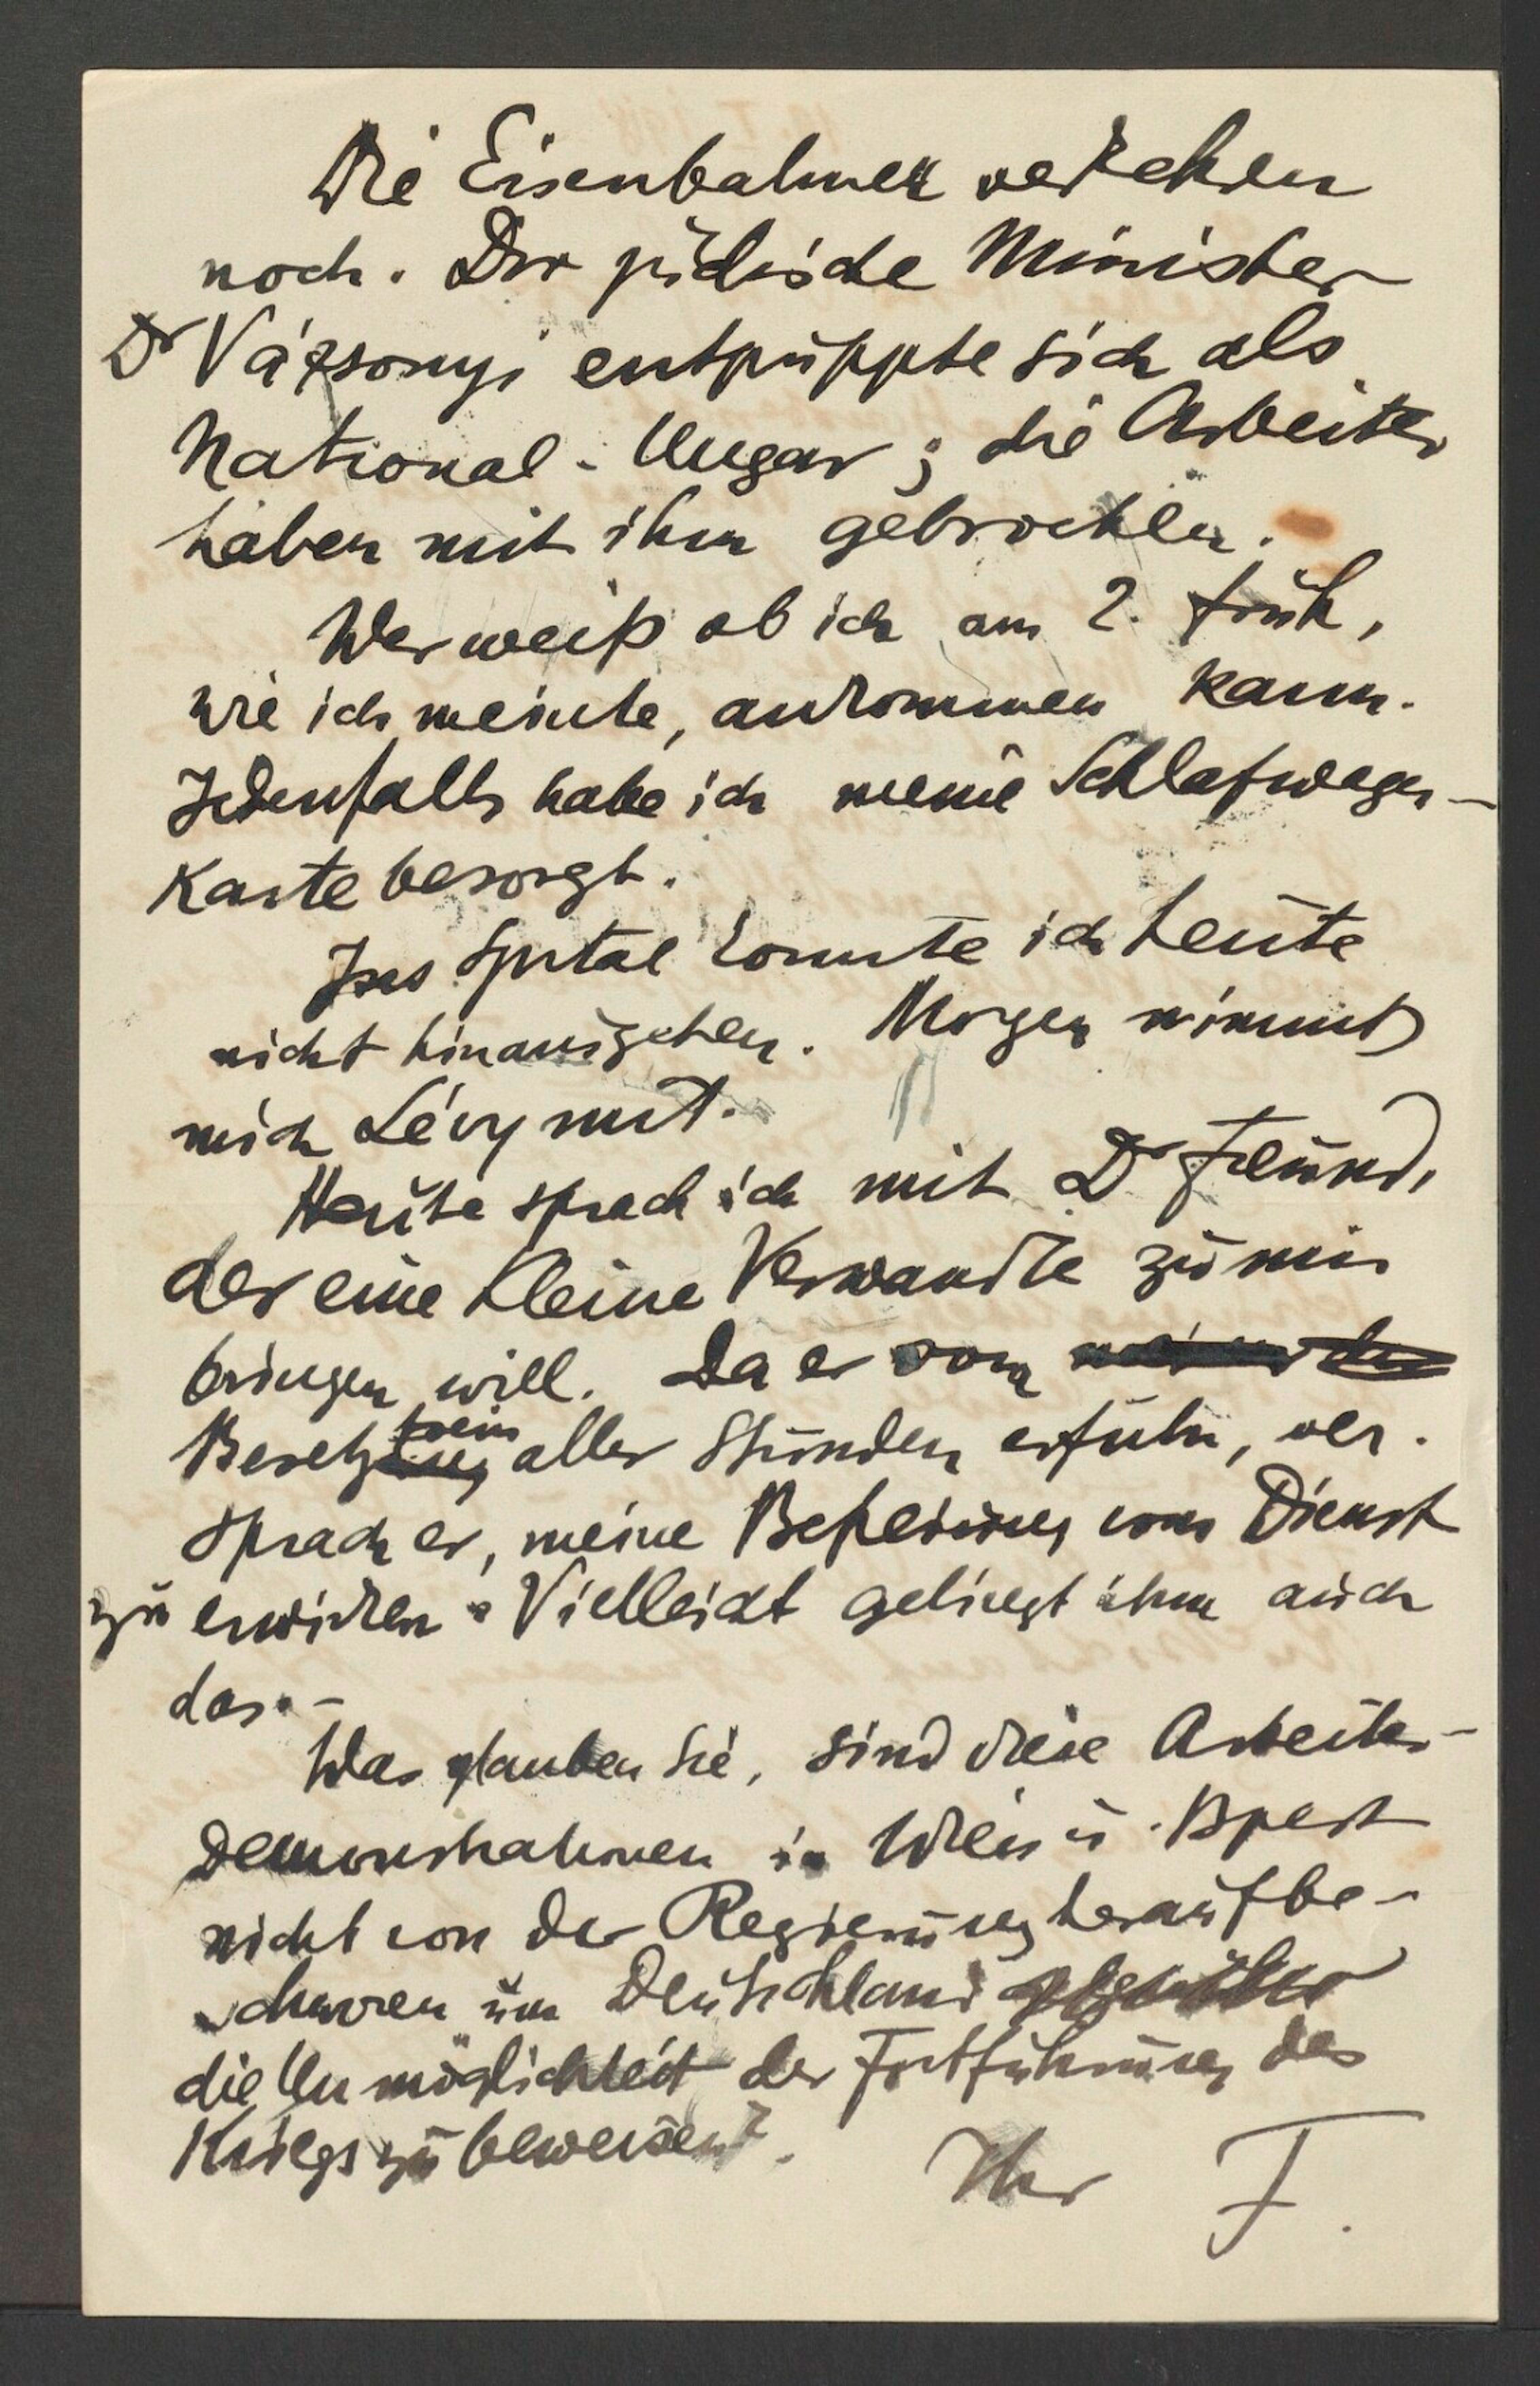 Die Eisenbahner verkehren
noch. Der jüdische Minister
Dr Vázsonyi entpuppte sich als
National-Ungar; die Arbeiter
haben mit ihm gebrochen.
Wer weiß ob ich am 2. früh,
wie ich meinte, ankommen kann.
Jedenfalls habe ich meine Schlafwagen-
Karte besorgt.
Ins Spital konnte ich heute
nicht hinausgehen. Morgen nimmt
mich Lévy mit.
Heute sprach ich mit Dr Freund,
der eine kleine Verwandte zu mir
bringen will. Da er vom
Besetztsein aller Stunden erfuhr, ver-
sprach er, meine Befreiung vom Dienst
zu erwirken. Vielleicht gelingt ihm auch
das. –
Was glauben Sie, sind diese Arbeiter-
Demonstrationen in Wien u. Bpest
nicht von der Regierung heraufbe-
schworen um Deutschland
die Unmöglichkeit der Fortführung des
Kriegs zu beweisen?
Ihr F.